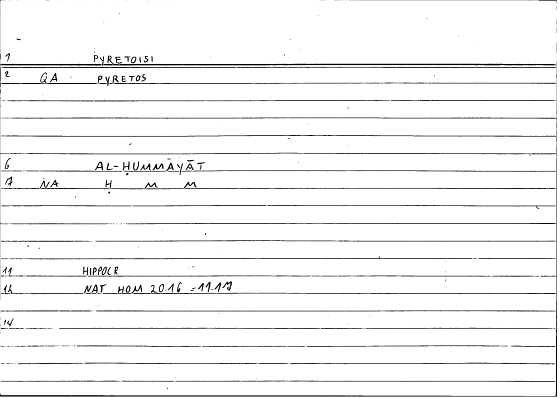 1 PYRETOISI
2 QA PYRETOS
6 AL-ḤUMMĀYĀT
7 NA Ḥ M M
11 HIPPOCR
12 NAT HOM 20.16 = 11.17
14